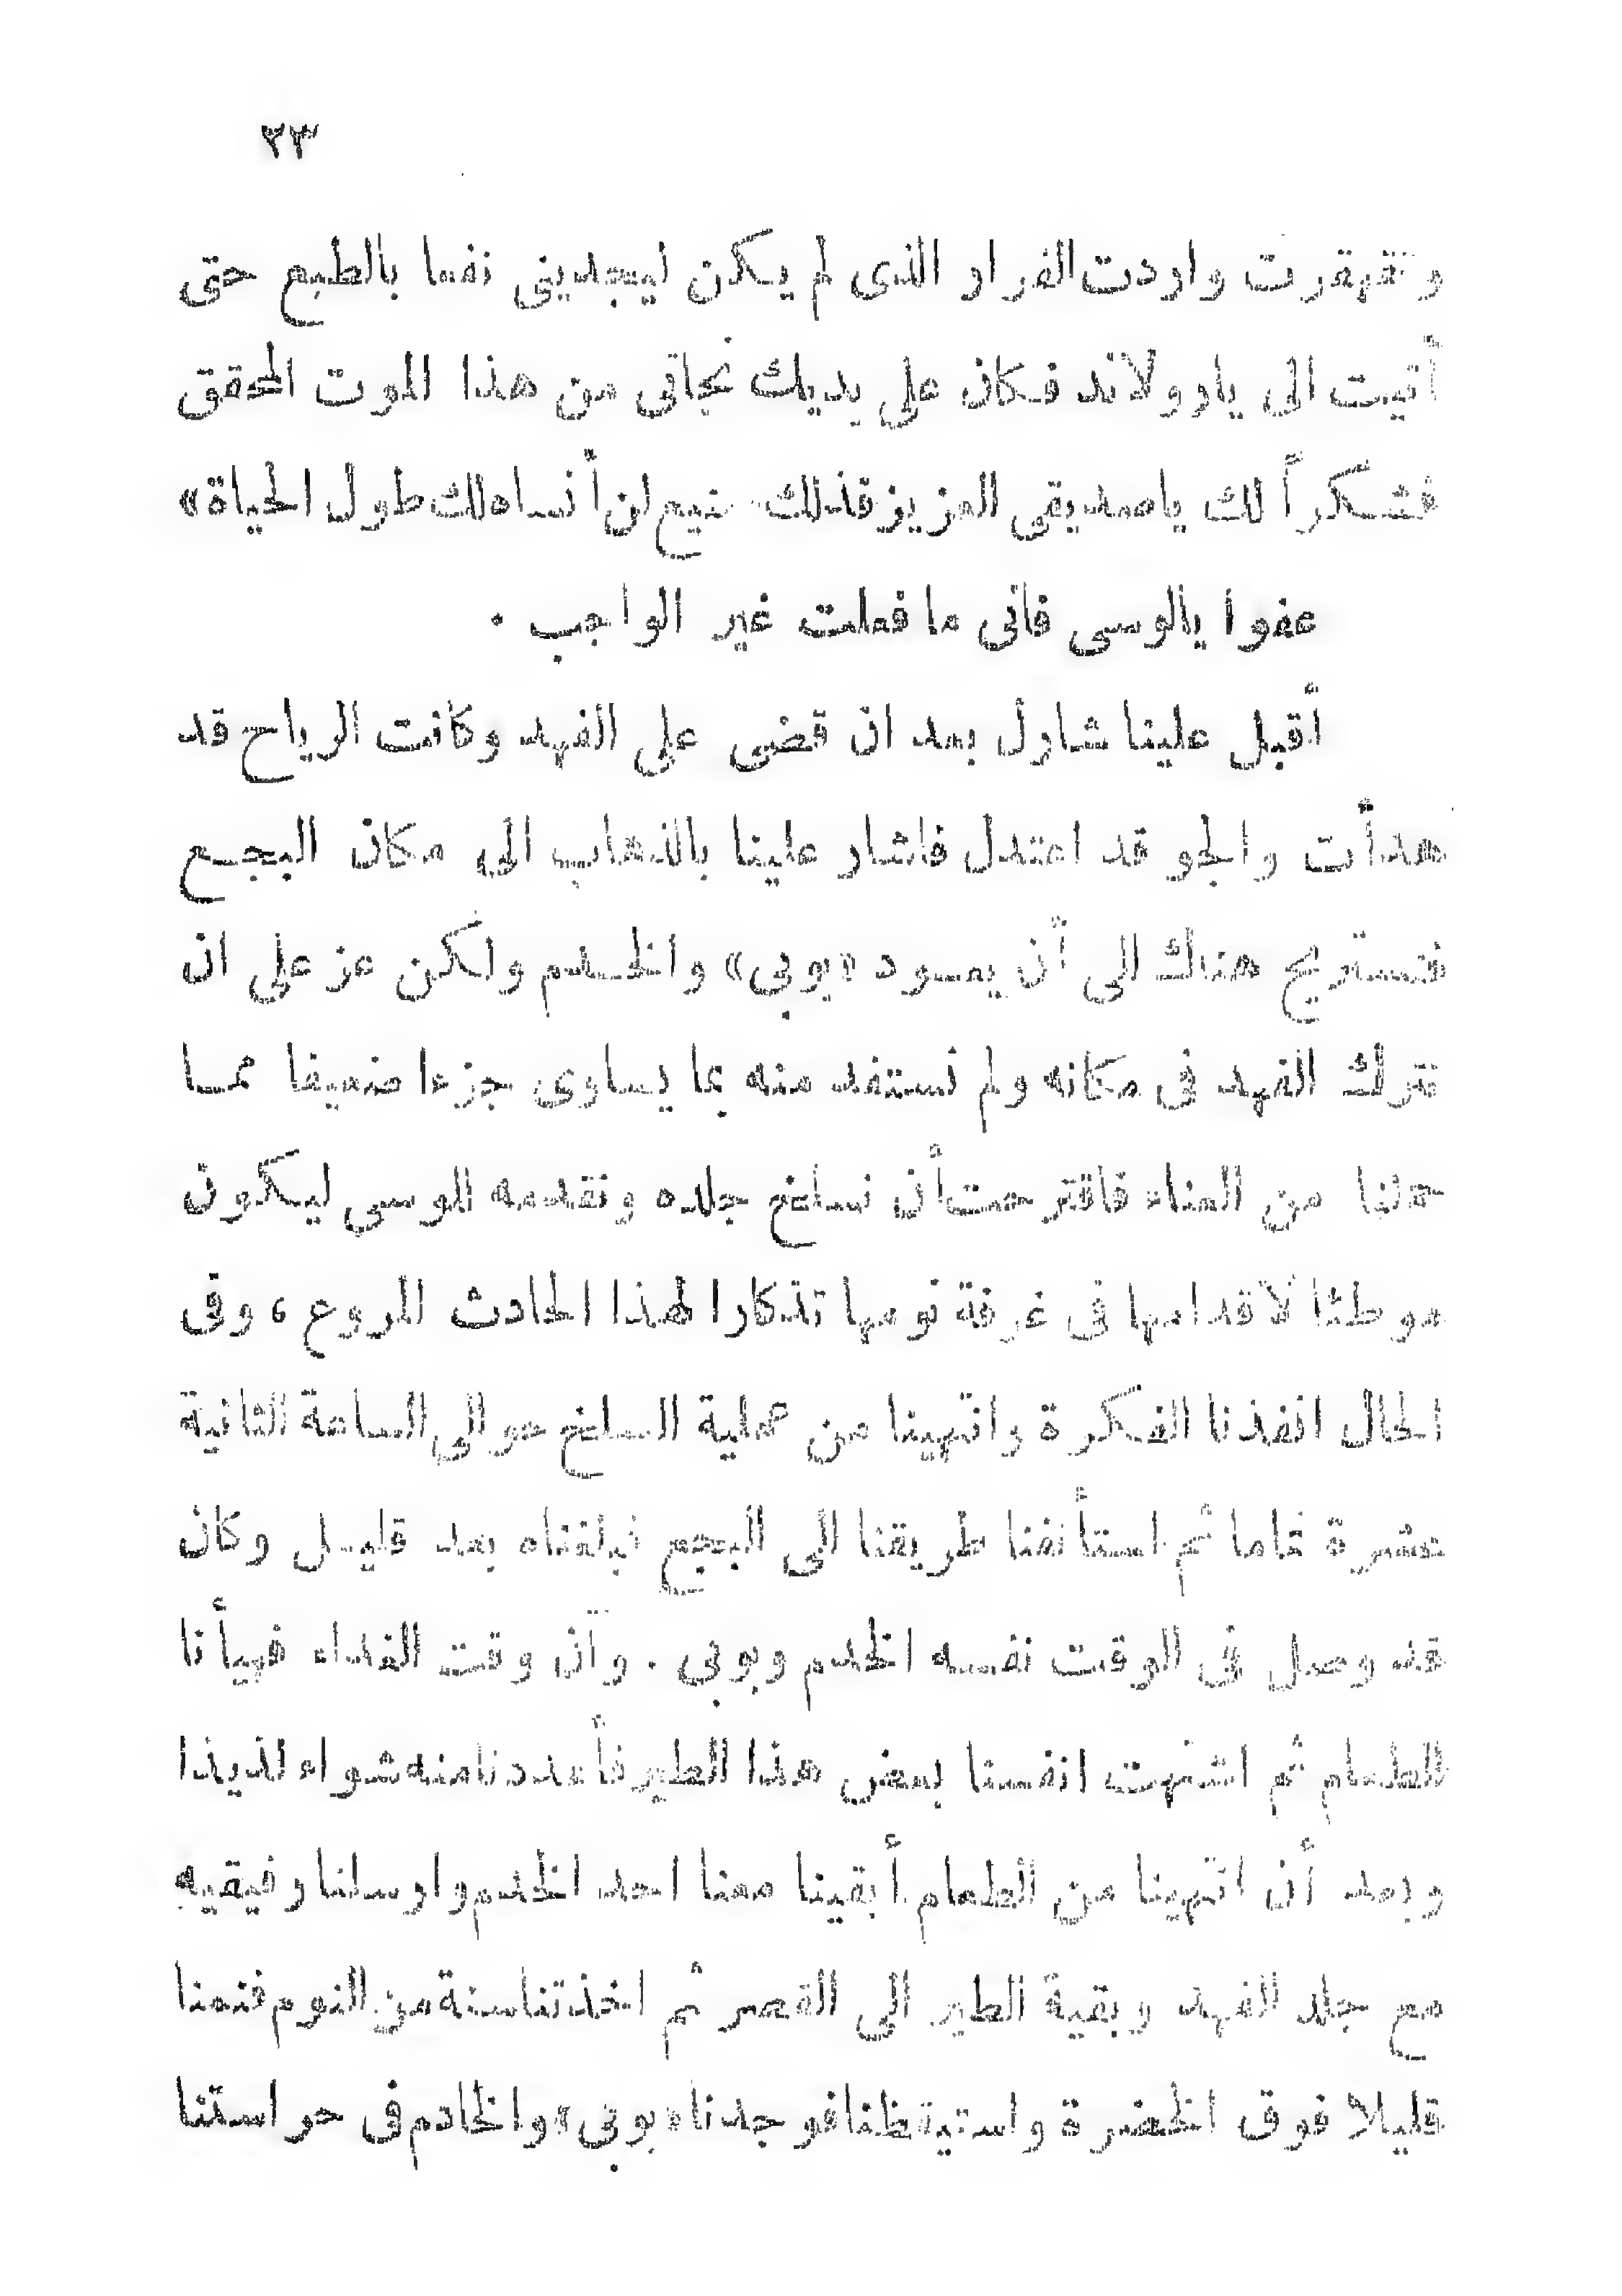 ٢٣
وتقهقرت واردت الفرار الذى لم يكن ليجدينى نفعا بالطبع حتى
أتيت الى يارولاند فكان على يديك نجاتى من هذا الموت المحقق
فشكراً لك ياصديقى العزيز فذلك صنيع لن أنساه لك طول الحياة»
عفوا يالوسى فانى ما فعلت غير الواجب .
أقبل علينا شارل بعد ان قضى على الفهد وكانت الرياح قد
هدأت والجو قد اعتدل فاشار علينا بالذهاب الى مكان البجع
فنستريح هناك الى أن يعود «بوبي» والخدم ولكن عز على ان
نترك الفهد فى مكانه ولم نستفد منه بما يساوى جزءا ضعيفا مما
حملنا من العناء فاقترحت أن نسلخ جلده ونقدمه للوسى ليكون
موطئا لاقدامها فى غرفة نومها تذكارا لهذا الحادث المروع ، وفى
الحال انفذنا الفكرة وانتهينا من عملية السلخ حوالى الساعة الثانية
عشرة تماما ثم استأنفنا طريقنا الى البجع فبلغناه بعد قليل وكان
قد وصل فى الوقت نفسه الخدم وبوبي . وآن وقت الغداء فهيأنا
الطعام ثم اشتهت انفسنا بعض هذا الطير فأعددنا منه شواء لذيذا
وبعد أن انتهينا من الطعام أبقينا معنا احد الخدم وارسلنا رفيقيه
مع جلد الفهد وبقية الطير الى القصر ثم اخذتنا سنة من النوم فنمنا
قليلا فوق الخضرة واستيقظنا فوجدنا «بوبى» والخادم فى حراستنا